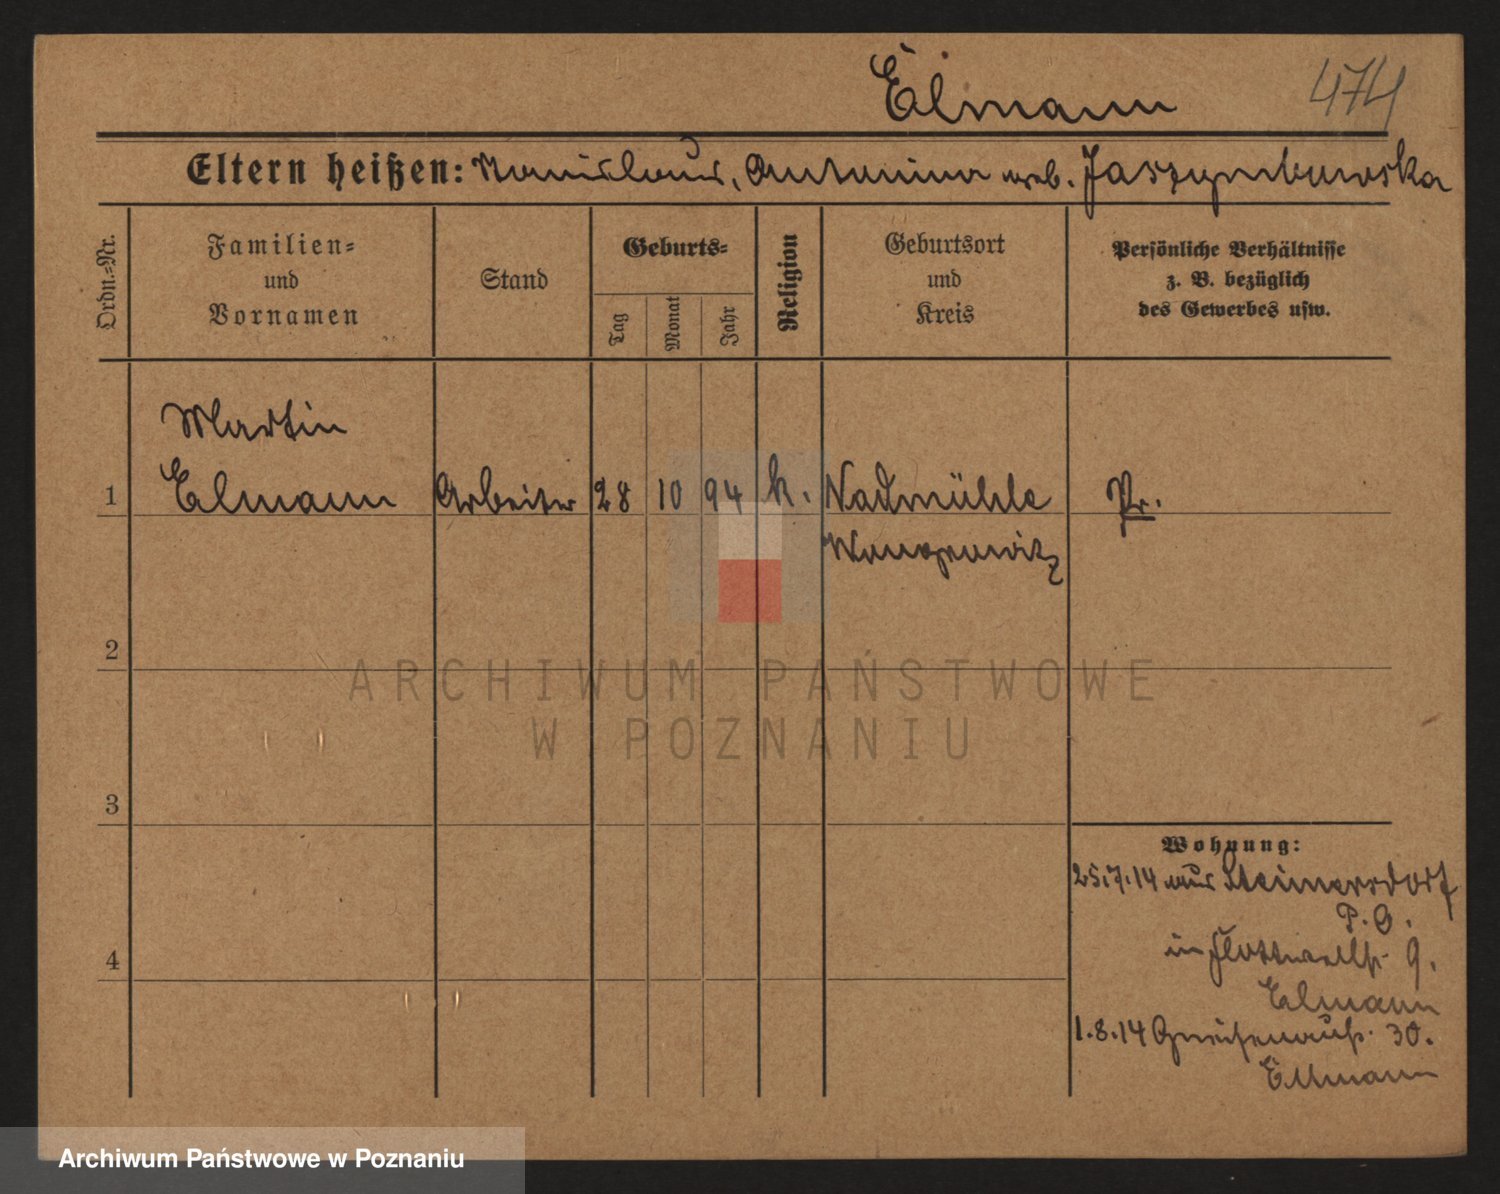 Elmann 474
Eltern heißen: Stanislaus, Antonina geb. Jaszymkowska
Ordn.=Nr.
Familien=
und
Vornamen
Stand
Geburts=
Tag
Monat
Jahr
Religion
Geburtsort
und
Kreis
Persönliche Verhältnisse
z. B. bezüglich
des Gewerbes usw.
Martin
1 Elmann Arbeiter 28 10 94 k. Nadmühle Pr.
Wongrowitz
2
3
4
Wohnung:
25.7.14 aus Steimersdorf
P. O.
in Flottwellstr. 9.
Elmann
1.8.14 Gneisenaustr. 30.
Ellmann
ARCHIWUM PAŃSTWOWE
W POZNANIU
Archiwum Państwowe w Poznaniu